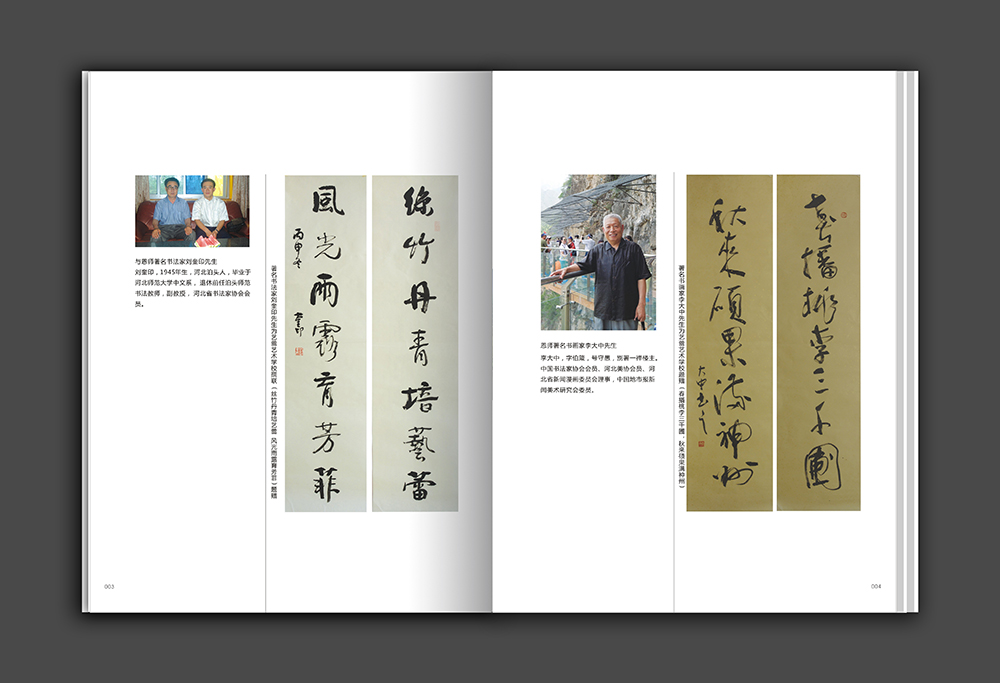 与恩师著名书法家刘奎印先生
刘奎印，1945年生，河北泊头人，毕业于
河北师范大学中文系，退休前任泊头师范
书法教师，副教授，河北省书法家协会会
员。
著名书法家刘奎印先生为艺蕾艺术学校题联（丝竹丹青培艺蕾 风光雨露育芳菲）题赠
絲竹丹青培藝蕾
風光雨露育芳菲
丙申冬
奎印
003
恩师著名书画家李大中先生
李大中，字伯箴，号守愚，别署一禅楼主。
中国书法家协会会员、河北美协会员、河
北省新闻漫画委员会理事，中国地市报新
闻美术研究会委员。
著名书画家李大中先生为艺蕾艺术学校题赠（春播桃李三千圃，秋来硕果满神州）
春播桃李三千圃
秋來碩果滿神州
004